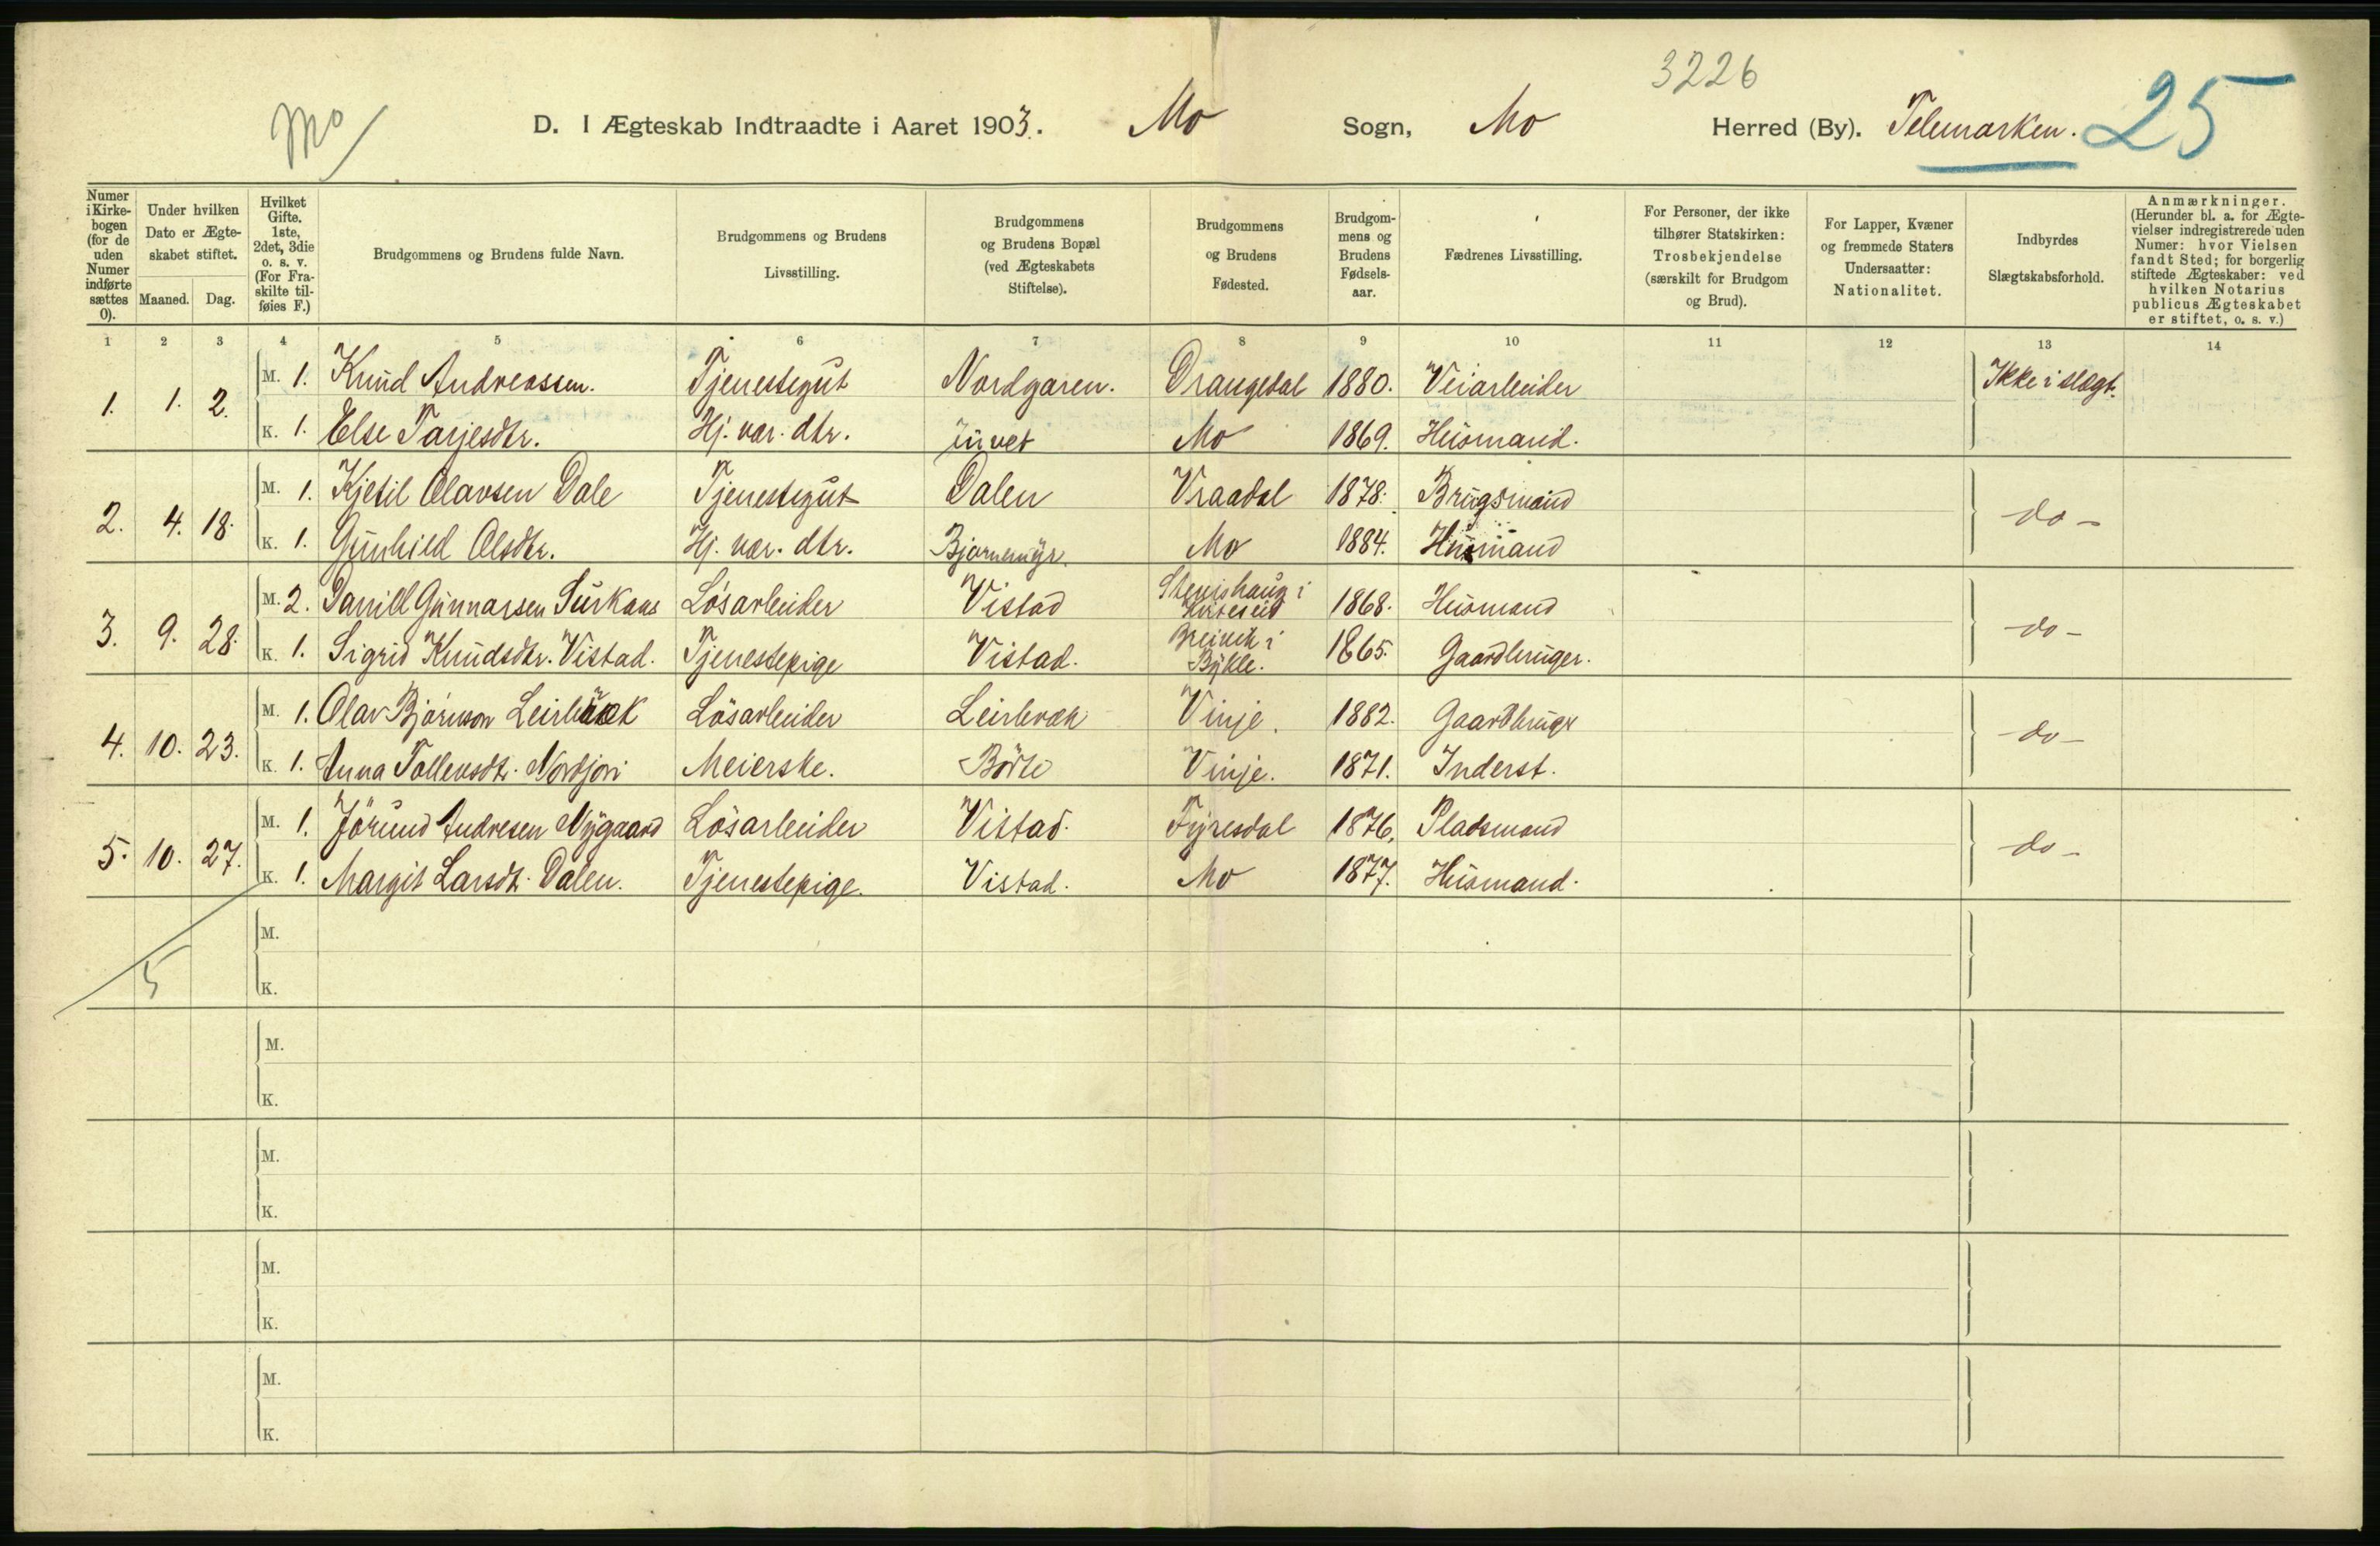 3226
Mo
D. I Ægteskab Indtraadte i Aaret 1903. Mo Sogn, Mo Herred (By). Telemarken. 25
Numer i Kirkebogen (for de uden Numer indførte sættes 0).
Under hvilken Dato er Ægteskabet stiftet.
Maaned. Dag.
Hvilket Gifte. 1ste, 2det, 3die o. s. v. (For Fraskilte tilføies F.)
Brudgommens og Brudens fulde Navn.
Brudgommens og Brudens Livsstilling.
Brudgommens og Brudens Bopæl (ved Ægteskabets Stiftelse).
Brudgommens og Brudens Fødested.
Brudgommens og Brudens Fødselsaar.
Fædrenes Livsstilling.
For Personer, der ikke tilhører Statskirken: Trosbekjendelse (særskilt for Brudgom og Brud).
For Lapper, Kvæner og fremmede Staters Undersaatter: Nationalitet.
Indbyrdes Slægtskabsforhold.
Anmærkninger. (Herunder bl. a. for Ægtevielser indregistrerede uden Numer: hvor Vielsen fandt Sted; for borgerlig stiftede Ægteskaber: ved hvilken Notarius publicus Ægteskabet er stiftet, o. s. v.)
1 2 3 4 5 6 7 8 9 10 11 12 13 14
1. 1. 2. M. 1. Knud Andreassen. Tjenestegut Nordgaren. Drangedal 1880. Veiarbeider Ikke i slægt.
K. 1. Else Tarjesdtr. Hj. vær. dtr. Mo 1869. Husmand.
2. 4. 18. M. 1. Kjetil Olavsen Dale Tjenestegut Dalen Vraadal 1878. Brugsmand do -
K. 1. Gunhild Olsdtr. Hj. vær. dtr. Bjørnemyr. Mo 1884. Husmand
3. 9. 28. M. 2. Gunnarsen Løsarbeider Vistad i 1868. Husmand do -
K. 1. Sigrid Knudsdtr. Vistad. Tjenestepige Vistad. i Bykle. 1865. Gaardbruger.
4. 10. 23. M. 1. Olav Bjørnson Leirbæk Løsarbeider Leirbvæk Vinje. 1882. Gaardbruger do -
K. 1. Anna Tallevsdtr. Meierske. Børte Vinje. 1871. Inderst.
5. 10. 27. M. 1. Jørund Andresen Nygaard Løsarbeider Vistad. Fyresdal 1876. Pladsmand do -
K. 1. Margit Larsdtr. Dalen. Tjenestepige. Vistad. Mo 1877. Husmand.
M.
5 K.
M.
K.
M.
K.
M.
K.
M.
K.